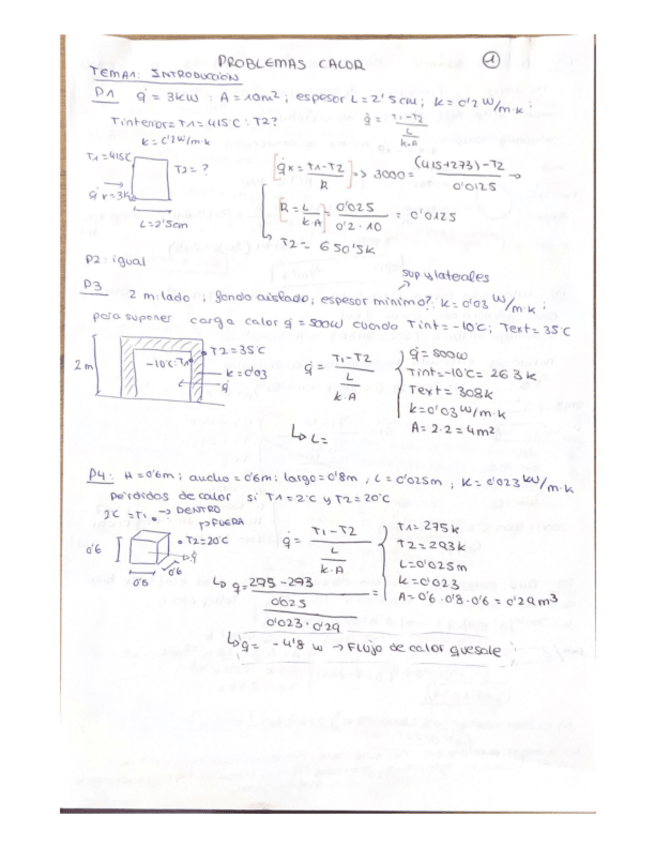 PROBLEMAS CALOR
1
TEMA1: INTRODUCCIÓN
P1 q̇ = 3kW : A = 10m² ; espesor L = 2'5cm ; k = 0'2 W/m·k ;
Tinterior = T1 = 415C : T2?
q̇ = T1-T2 / L/k·A
k = 0'2W/m·k
T1 = 415C
T2 = ?
q̇x = 3k
L = 2'5cm
[q̇x = T1-T2 / R] => 3000 = (415+273)-T2 / 0'0125 →
[R = L / k·A] = 0'025 / 0'2·10 = 0'0125
↳ T2 = 650'5k
P2: igual
sup y laterales
P3 2 m:lado ; fondo aislado; espesor mínimo? k = 0'03 W/m·k ;
para suponer carga calor q̇ = 500W cuando Tint = -10°C; Text = 35°C
2 m
-10°C:T1
T2 = 35°C
k = 0'03
q̇
q̇ = T1-T2 / L/k·A
↳ L =
q̇ = 500W
Tint = -10°C = 263k
Text = 308k
k = 0'03 W/m·k
A = 2·2 = 4m²
P4: H = 0'6m ; ancho = 0'6m ; largo = 0'8m , L = 0'025m ; k = 0'023 kW/m·k
pérdidas de calor si T1 = 2°C y T2 = 20°C
2C = T1 → DENTRO
↱ FUERA
T2 = 20°C
q̇
0'6
0'8
0'6
q̇ = T1-T2 / L/k·A
T1 = 275k
T2 = 293k
L = 0'025m
k = 0'023
A = 0'6·0'8·0'6 = 0'29m³
↳ q = 295-293 / 0'025 / 0'023·0'29 =
↳ q̇ = -4'8 W → Flujo de calor que sale